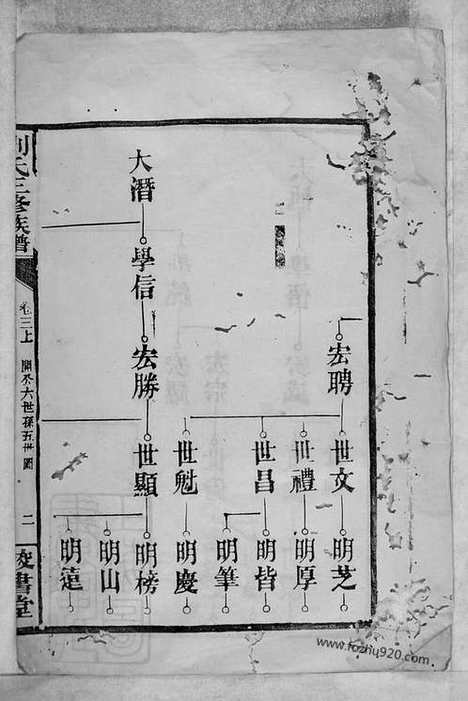 宏聘
世文
世禮
世昌
世魁
明芝
明厚
明皆
明筆
明慶
大潛
學信
宏勝
世顯
明榜
明山
明遠
氏三修族譜
卷三上
開公六世孫五世圖
二
書堂
www.fozhu920.com